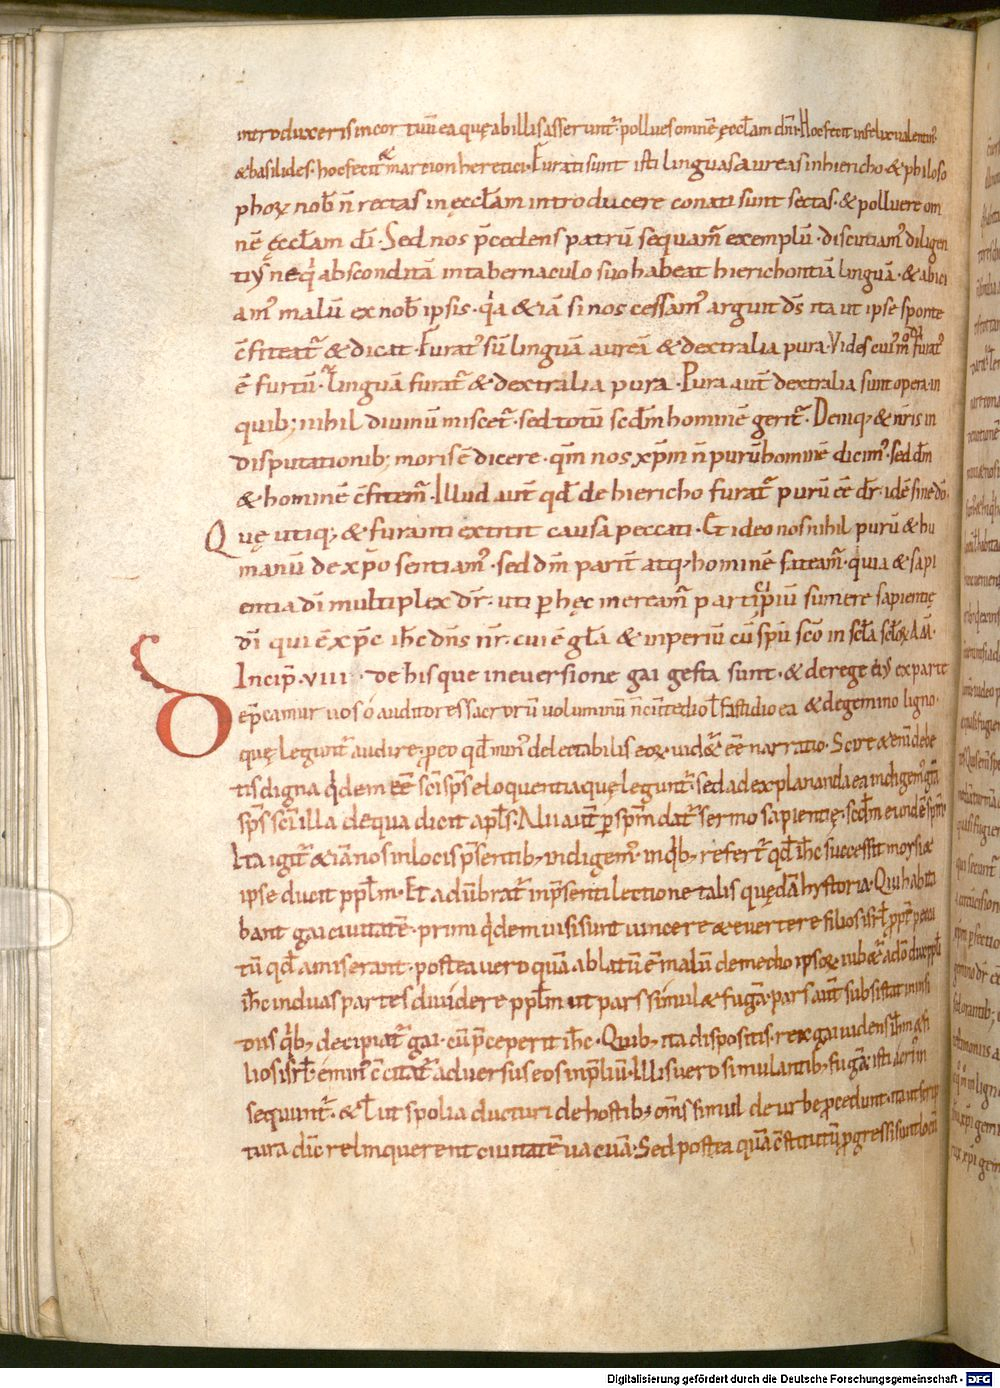 introduxeris in cor tuū ea quę ab illis asserunt᷑ · pollues omnē ęccl̄am dn̄i · Hoc fecit infelix ualentin᷒
& basilides · hoc fecit & marcion heretici · Furati sunt isti linguas aureas in hiericho & philoso
phoꝝ nob̄ n̄ rectas in ęccl̄am introducere conati sunt sectas · & polluere om
nē ęccl̄am dī · Sed nos p̄cedens patrū sequam᷑ exemplū · discutiam᷒ diligen
ti᷒ ne qͥ absconditā in tabernaculo suo habeat hierichontiā linguā · & abici
am᷒ malū ex nob̄ ipsis · q̇a & iā si nos cessam᷒ arguit ds̄ ita ut ipse sponte
c̄fiteat᷑ & dicat · Furat᷒ sū linguā aureā & dextralia pura · Vides cui᷒mͦdi furat᷒
ē furtū · Linguā furat᷑ & dextralia pura · Pura aut̄ dextralia sunt opera in
quib; nihil diuinū miscet᷑ · sed totū scd̄m hominē gerit᷑ · Deniq; & nr̄is in
disputationib; moris ē dicere · qm̄ nos xp̄m n̄ purū hominē dicim᷒ · sed dm̄
& hominē c̄fitem᷑ · Illud aut̄ qd̄ de hiericho furat᷑ purū ēē dr̄ · idē sine dō ·
Quę utiq; & furanti extitit causa peccati · Et ideo nos nihil purū & hu
manū de xp̄o sentiam᷒ · sed dm̄ parit̄ atq; hominē fateam᷑ · quia & sapi
entia dī multiplex dr̄ · uti p̱ hęc meream᷑ participiū sumere sapientię
dī qui ē xp̄c ih̄c dn̄s nr̄ · cui ē gl̄a & imperiū cū sp̄u scō in scl̄a scl̄oꝝ am̄ ·
Incip̄ · viii · de his que in euersione gai gesta sunt · & de rege ei᷒ ex parte
Dep̄camur uos o auditores sacrorū uoluminū n̄ cū tedio l̄ fastidio ea & de gemino ligno ·
quę legunt᷑ audire · ꝑeo qd̄ min᷒ delectabilis eoꝝ uid&᷑ ēē narratio · Scire & enī debe
tis digna q̇dem ēē scī sp̄s eloquentia quę legunt᷑ · sed ad explananda ea indigem᷒ gr̄a
sp̄s scī illa de qua dicit apl̄s · Alii aut̄ ꝑ sp̄m dat᷑ sermo sapientię · scd̄m eundē sp̄m ·
Ita igit᷑ & iā nos in locis p̄sentib; indigem᷒ · in q̇b; refert᷑ qd̄ ih̄c successit moysi &
ipse ducit ppl̄m · Et adūbrat᷑ in p̄senti lectione talis quędā hystoria · Qui habita
bant gai ciuitatē · primi q̇dem uisi sunt uincere & euertere filios isrl̄ ꝓpt̄ pecca
tū qd̄ amiserant · postea uero quā ablatū ē malū de medio ipsoꝝ · iub&᷑ a dō dux ppl̄i
ih̄c in duas partes diuidere ppl̄m ut pars simul & fugā · pars aut̄ subsistat in insi
diis q̇b; decipiat᷑ gai · cū p̄ceperit ih̄c · Quib; ita dispositis · rex gai uidens ih̄m & fi
lios isrl̄ · eminus c̄citat᷑ aduersus eos in p̄liū · Illi uero simulantib; fugā · isti acrim̄
sequunt᷑ · & l̄ ut spolia ducturi de hostib; om̄s simul de urbe ꝓcedunt · ita ut scrip
tura dic̄ relinquerent ciuitatē uacuā · Sed postea quā c̄stitutū ꝓgressi sunt locū
Digitalisierung gefördert durch die Deutsche Forschungsgemeinschaft - DFG